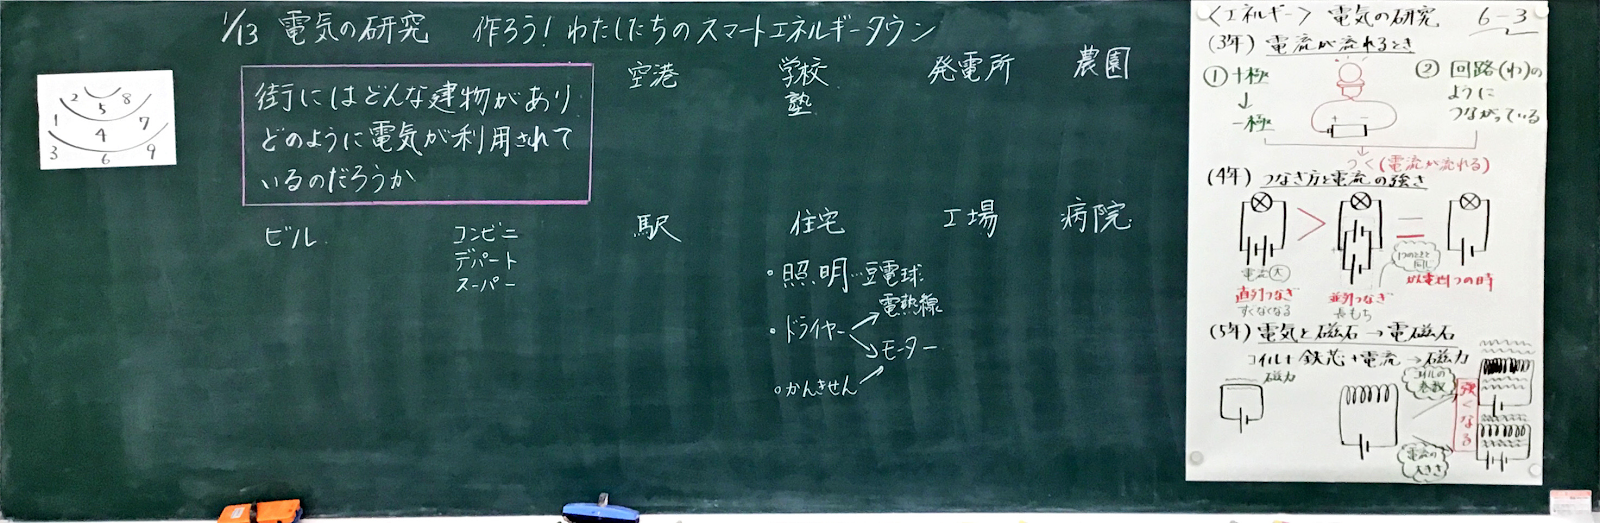 1/13 電気の研究 作ろう！わたしたちのスマートエネルギータウン
2 8
5
1 4 7
3 6 9
街にはどんな建物があり
どのように電気が利用されて
いるのだろうか
空港
学校
塾
発電所
農園
ビル
コンビニ
デパート
スーパー
駅
住宅
工場
病院
・照明…豆電球
電熱線
・ドライヤー
モーター
・かんきせん
<エネルギー> 電気の研究 6-3
(3年) 電流が流れるとき
① +極
↓
-極
+ -
② 回路(わ)の
ように
つながっている
つく(電流が流れる)
(4年) つなぎ方と電流の強さ
> =
電流 大
直列つなぎ
すぐなくなる
並列つなぎ
長もち
1つのときと
同じ
電池1つの時
(5年) 電気と磁石→電磁石
コイル+鉄芯+電流→磁力
磁力
コイルの
巻数
電流の
大きさ
強くなる